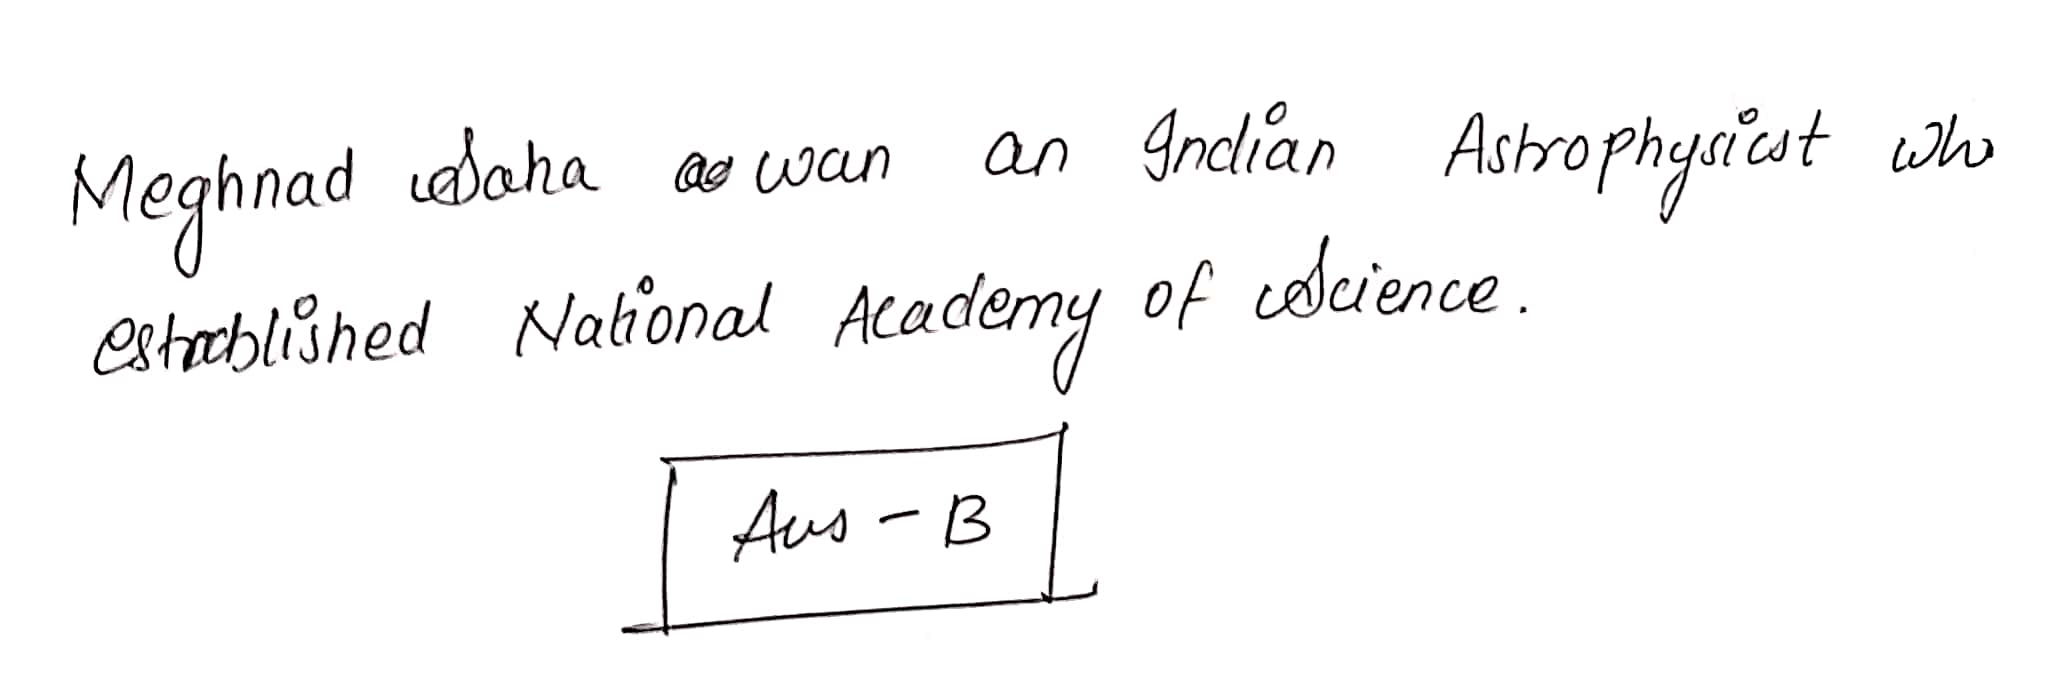 Meghnad Saha was an Indian Astrophysicist who
established National Academy of Science.
Ans - B